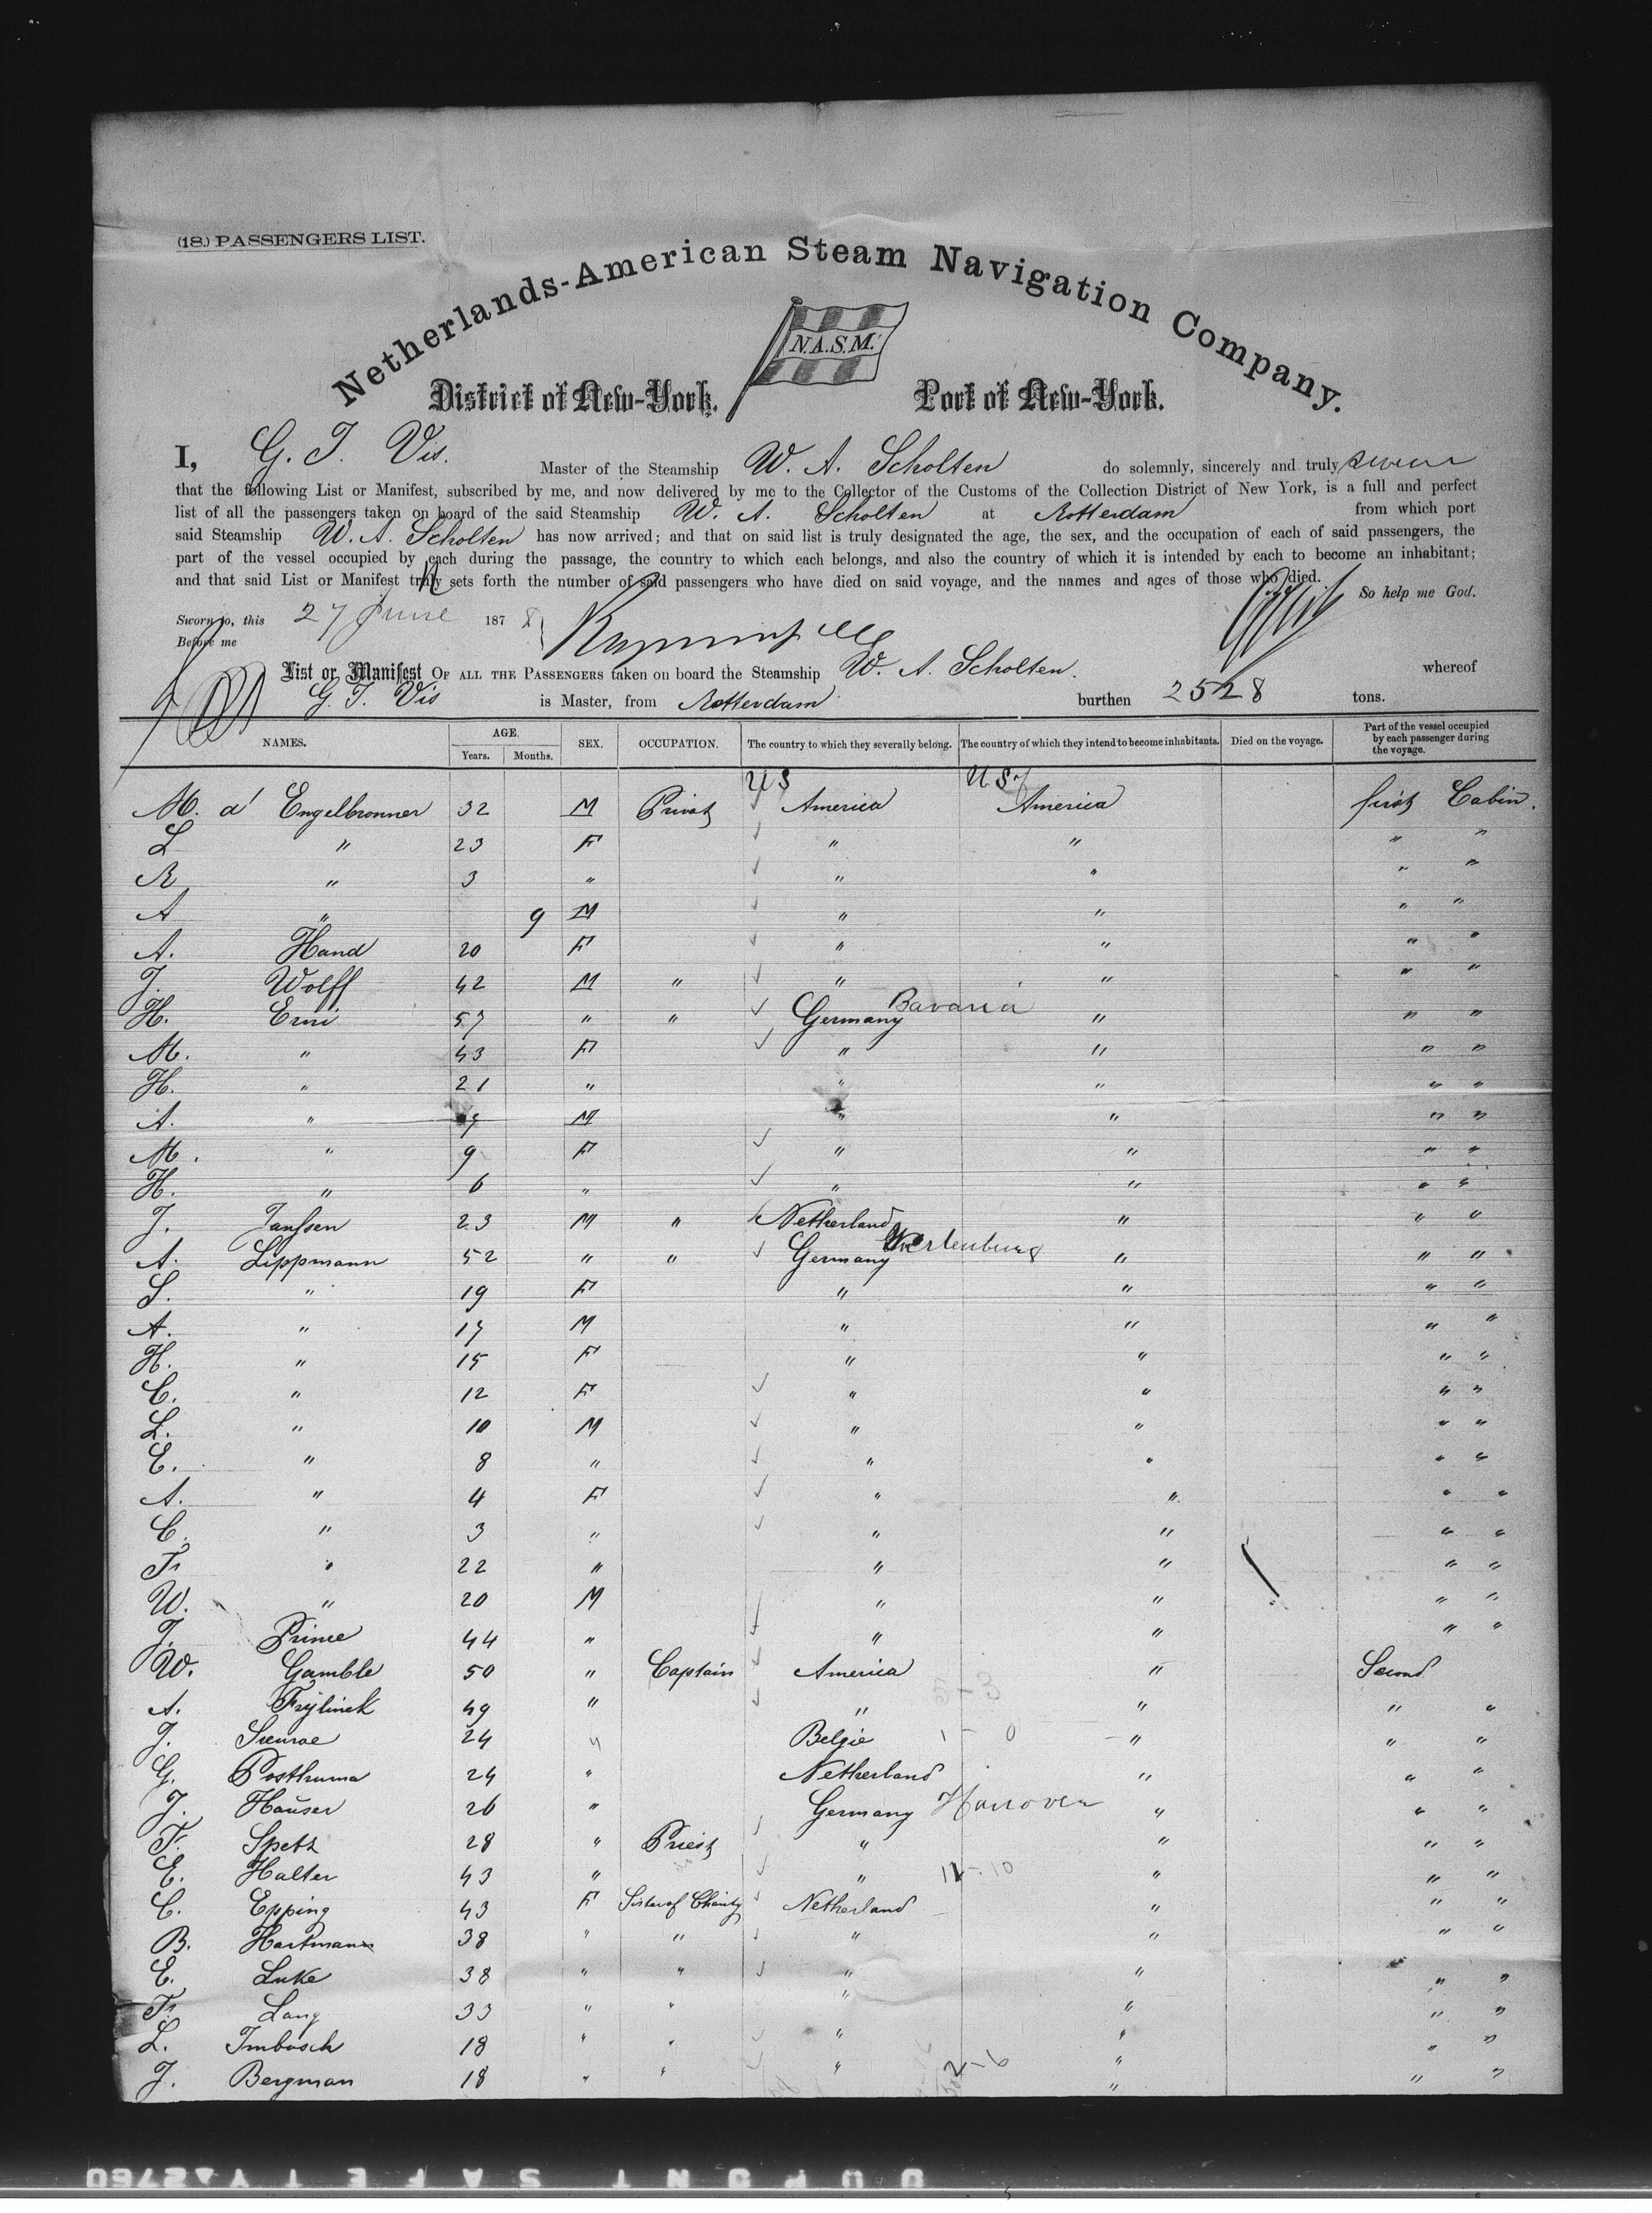 (18.) PASSENGERS LIST.
Netherlands-American Steam Navigation Company.
N.A.S.M.
District of New-York. Port of New-York.
I, G. J. Vis. Master of the Steamship W. A. Scholten do solemnly, sincerely and truly swear
that the following List or Manifest, subscribed by me, and now delivered by me to the Collector of the Customs of the Collection District of New York, is a full and perfect
list of all the passengers taken on board of the said Steamship W. A. Scholten at Rotterdam from which port
said Steamship W. A. Scholten has now arrived; and that on said list is truly designated the age, the sex, and the occupation of each of said passengers, the
part of the vessel occupied by each during the passage, the country to which each belongs, and also the country of which it is intended by each to become an inhabitant;
and that said List or Manifest truly sets forth the number of said passengers who have died on said voyage, and the names and ages of those who died.
So help me God.
Sworn to, this 27 June 1878
Before me
List or Manifest OF ALL THE PASSENGERS taken on board the Steamship W. A. Scholten. whereof
G. J. Vis is Master, from Rotterdam burthen 2528 tons.
NAMES. AGE. Years. Months. SEX. OCCUPATION. The country to which they severally belong. The country of which they intend to become inhabitants. Died on the voyage. Part of the vessel occupied by each passenger during the voyage.
US US
M. d' Engelbronner 32 M Privat America America first Cabin.
L " 23 F " " " "
R " 3 " " " " "
A " 9 M " " " "
A. Hand 20 F " " " "
J. Wolff 42 M " " " " "
H. Erni 57 " " Germany Bavaria " " "
M. " 43 F " " " "
H. " 21 " " " " "
A. " M " " " "
M. " 9 F " " " "
H. " 6 " " " " "
J. Janssen 23 M " Netherland " " "
A. Lippmann 52 " " Germany " " "
S. " 19 F " " " "
A. " 17 M " " " "
H. " 15 F " " " "
C. " 12 F " " " "
L. " 10 M " " " "
E. " 8 " " " " "
A. " 4 F " " " "
C. " 3 " " " " "
Fr " 22 " " " " "
W. " 20 M " " " "
J. Prince 44 " " " " "
W. Gamble 50 " Captain America " Second
A. Frijlinck 49 " " " " "
J. 24 " Belgie 1 - 0 " " "
G. Posthuma 24 " Netherland " " "
J. Haŭser 26 " Germany Hanover " " "
Fr. Spetz 28 " Priest " " " "
E. Halter 43 " " 11 - 10 " " "
C. Epping 43 F Sister of Charity Netherland " " "
B. Hartmann 38 " " " " " "
E. Luke 38 " " " " " "
Fr. Lang 33 " " " " " "
L. Imbusch 18 " " " " " "
J. Bergman 18 " " " 2 - 6 " " "
"
DUPONT SAFETY 2760